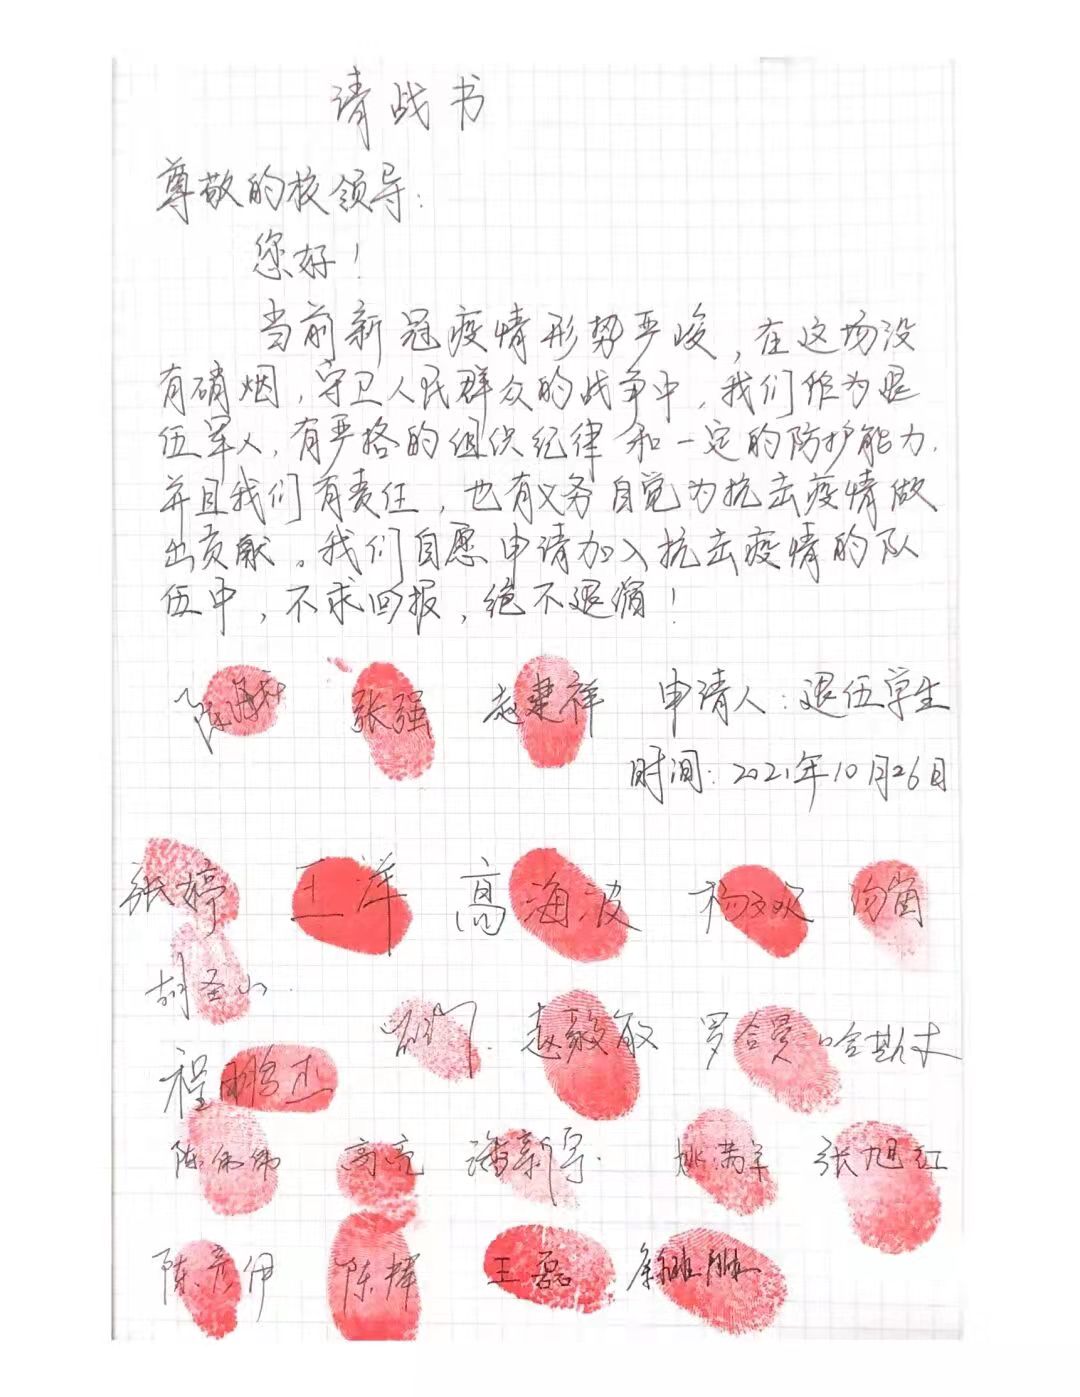 请战书
尊敬的校领导：
您好！
当前新冠疫情形势严峻，在这场没
有硝烟，守卫人民群众的战争中，我们作为退
伍军人，有严格的组织纪律和一定的防护能力，
并且我们有责任，也有义务自觉为抗击疫情做
出贡献。我们自愿申请加入抗击疫情的队
伍中，不求回报，绝不退缩！
张强 赵建祥 申请人：退伍学生
时间：2021年10月26日
张婷 王洋 高海波 杨文欢
胡圣山
赵毅敏 罗合曼·哈斯木
程鹏杰
陈伟伟 高亮 潘新宇 姚满年 张旭红
陈彦伊 陈辉 王磊